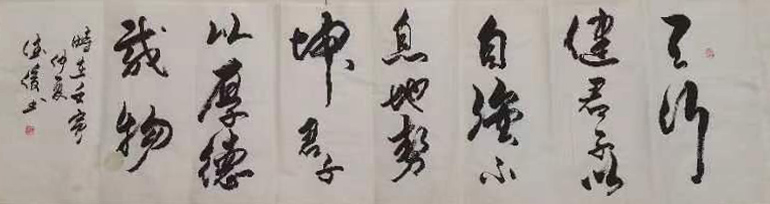 天行
健君子以
自强不
息地势
坤君子
以厚德
载物
时在壬寅
仲夏